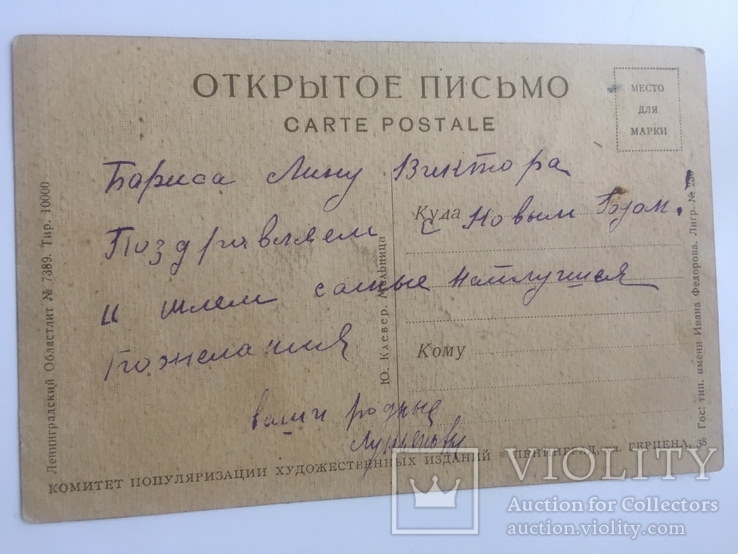 ОТКРЫТОЕ ПИСЬМО
CARTE POSTALE
МЕСТО
ДЛЯ
МАРКИ
Бориса Лину Виктора
Поздравляем с Новым Годом!
и шлем самые наилучшея
пожелания
ваши родные
Куда
Кому
Ленинградский Областлит № 7389. Тир. 10000
Ю. Клевер. Мельница
Гос. тип. имени Ивана Федорова. Лигр. №
КОМИТЕТ ПОПУЛЯРИЗАЦИИ ХУДОЖЕСТВЕННЫХ ИЗДАНИЙ ЛЕНИНГРАД, ГЕРЦЕНА, 38
VIOLITY
Auction for Collectors
auction.violity.com